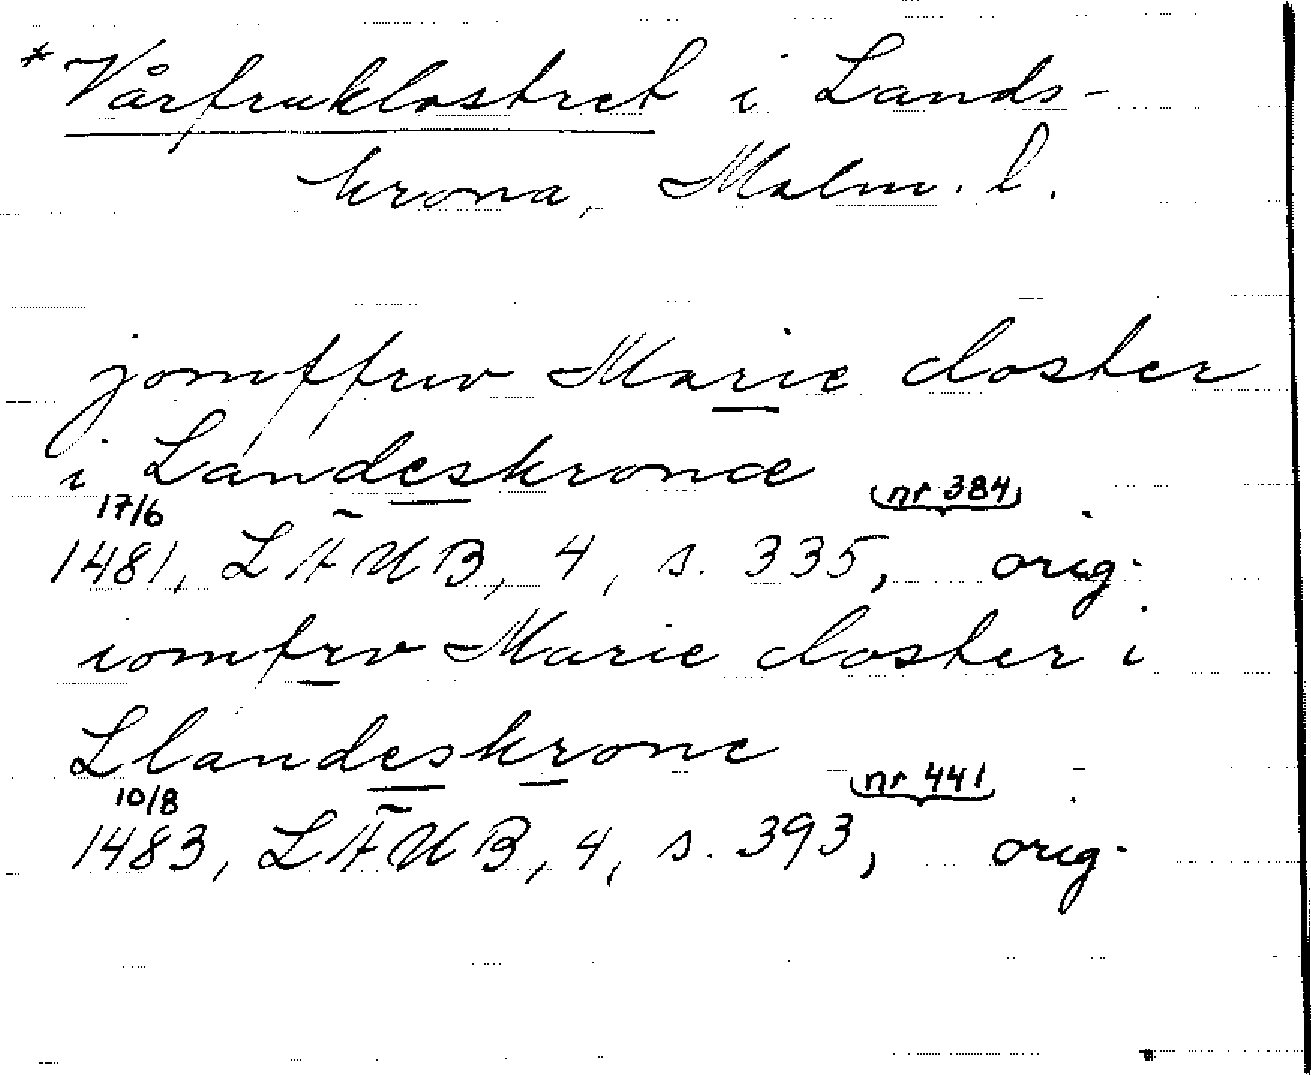 *Vårfruklostret i Lands-
krona, Malm. l.
jomffrw Marie closter
i Landeskronæ
17/6 nr 384
1481, LÄUB, 4, s. 335, orig.
iomfrv Marie closter i
Llandeskrone
10/8 nr 441
1483, LÄUB, 4, s. 393, orig.